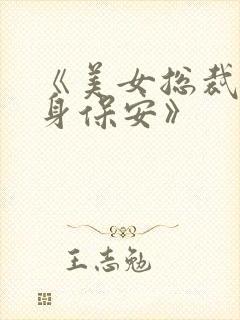 《美女总裁
身保安》
王志勉